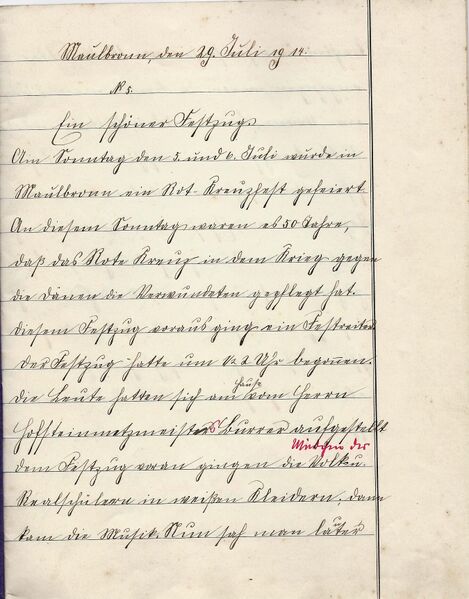 Maulbronn, den 29. Juli 1914.
N 5.
Ein schöner Festzug.
Am Sonntag den 5. und 6. Juli wurde in
Maulbronn ein Rot-Kreuzfest gefeiert
An diesem Sonntag waren es 50 Jahre,
daß das Rote Kreuz in dem Krieg gegen
die Dänen die Verwundeten gepflegt hat.
Diesem Festzug voraus ging ein Festreiter
Der Festzug hatte um ½ 2 Uhr begonnen.
Die Leute hatten sich am Hause vom Herrn
Hofsteinmetzmeisters Burrer aufgestellt
Mädchen der
dem Festzug voran gingen die Volks u.
Realschülern in weißen Kleidern, dann
kam die Musik. Nun sah man lauter